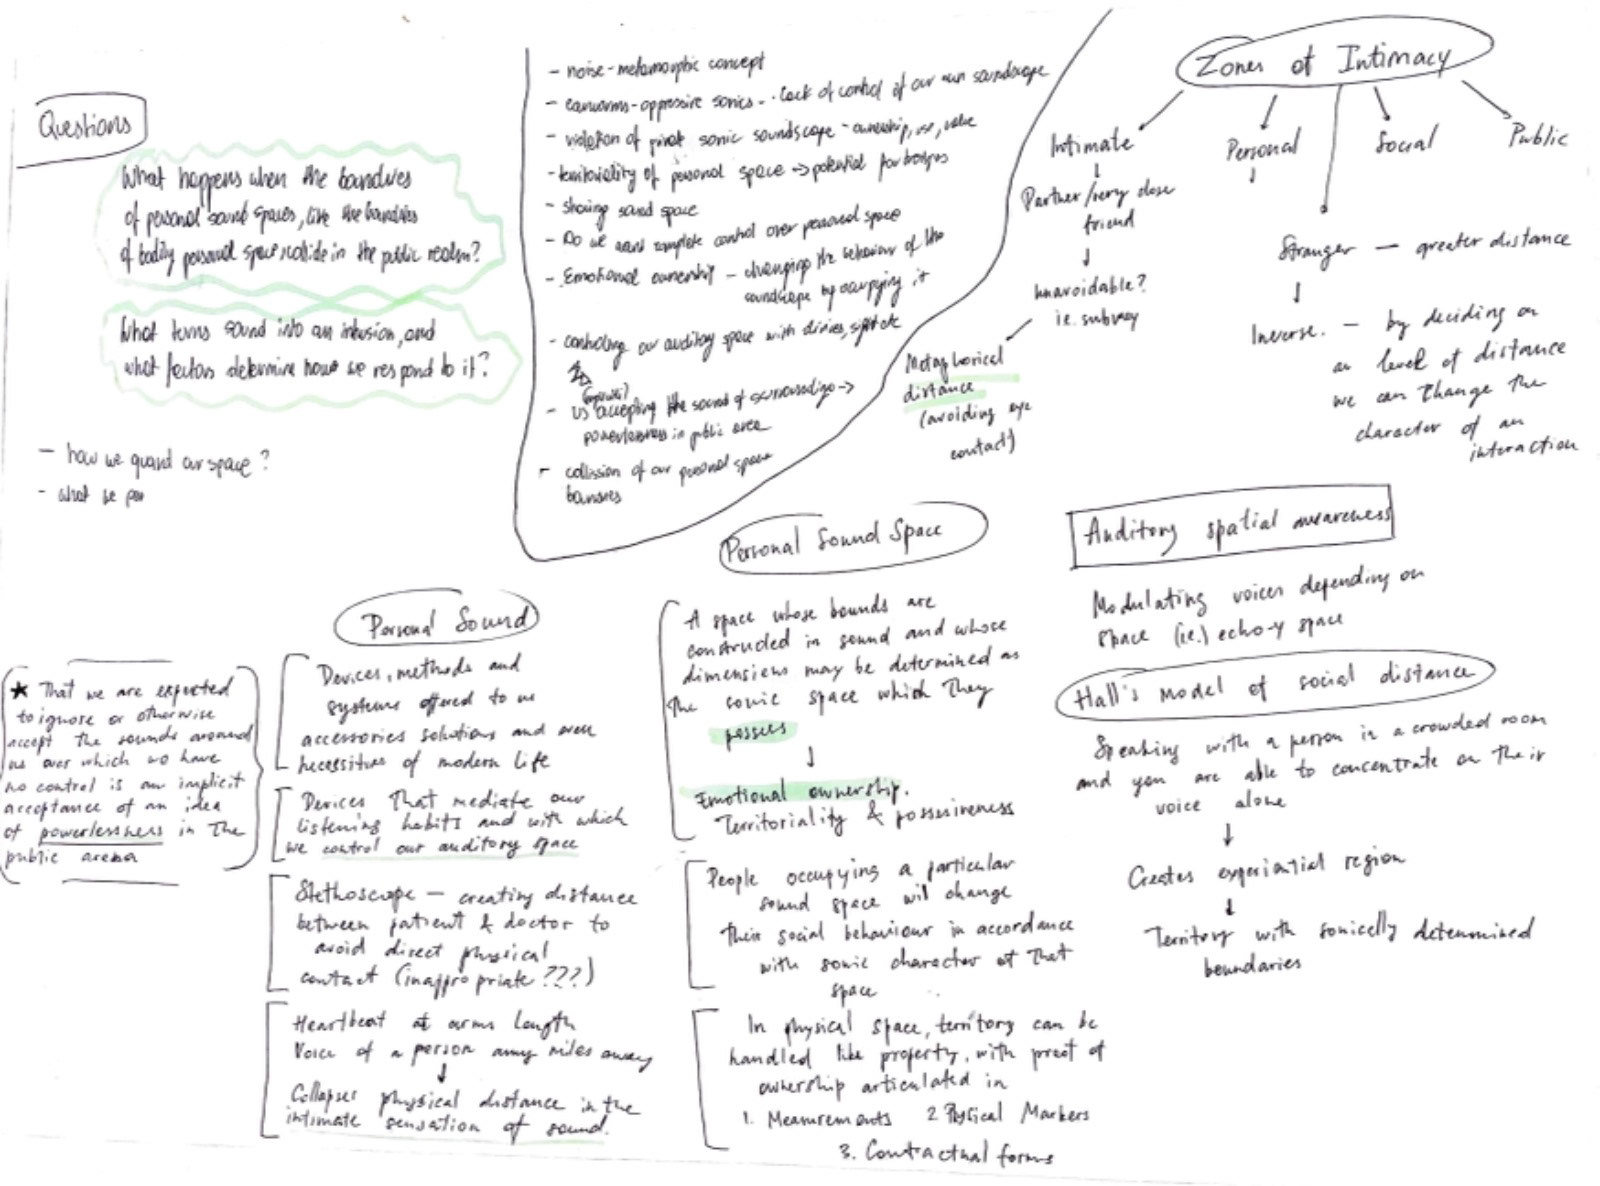 Questions
What happens when the bandries
of personal sound spaces, like the bandries
of bodily personal space, collide in the public realm?
What turns sound into an intusion, and
what factors determine how we respond to it?
- how we guard our space?
- what se per
- noise - metamorphic concept
- earworms - oppressive sonics - lack of control of our own soundscape
- violation of sonic soundscape - ownership, use, value
- territoriality of personal space → potential for
- sharing sound space
- Do we want complete control over personal space
- Emotional ownership - changing the behaviour of the
soundscape by occupying it
- our auditory space with
- us accepting the sound of →
powerlessness in public area
- collission of our personal space
Zones of Intimacy
Intimate
Personal
Social
Public
↓
Partner/very close
friend
↓
Unavoidable?
ie. subway
Metaphorical
distance
(avoiding eye
contact)
Stranger — greater distance
↓
Inverse. — by deciding on
an level of distance
we can change the
character of an
interaction
★ That we are expected
to ignore or otherwise
accept the sounds around
us over which we have
no control is an implicit
acceptance of an idea
of powerlessness in the
public arena
Personal Sound
Devices, methods and
systems offered to us
accessories solutions and even
necessities of modern life
Devices that mediate our
listening habits and with which
we control our auditory space
Stethoscope — creating distance
between patient & doctor to
avoid direct physical
contact (inappropriate???)
Heartbeat at arms length
Voice of a person many miles away
↓
Collapses physical distance in the
intimate sensation of sound.
Personal Sound Space
A space whose bounds are
constructed in sound and whose
dimensions may be determined as
the sonic space which they
possess
↓
Emotional ownership.
Territoriality & possessiveness
People occupying a particular
sound space will change
their social behaviour in accordance
with sonic character of that
space
In physical space, territory can be
handled like property, with proof of
ownership articulated in
1. Meaurements 2 Physical Markers
3. Contractual forms
Auditory spatial awareness
Modulating voices depending on
space (ie.) echo-y space
Hall's model of social distance
Speaking with a person in a crowded room
and you are able to concentrate on their
voice alone
↓
Creates experiential region
↓
Territory with sonically determined
boundaries